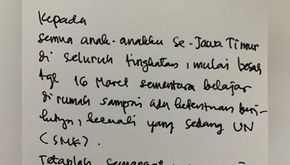 Kepada
Semua anak-anakku se-Jawa Timur
di seluruh tingkatan, mulai besok
tgl 16 Maret sementara belajar
di rumah sampai ada ketentuan beri-
kutnya, kecuali yang sedang UN
(SMK).
Tetaplah semangat